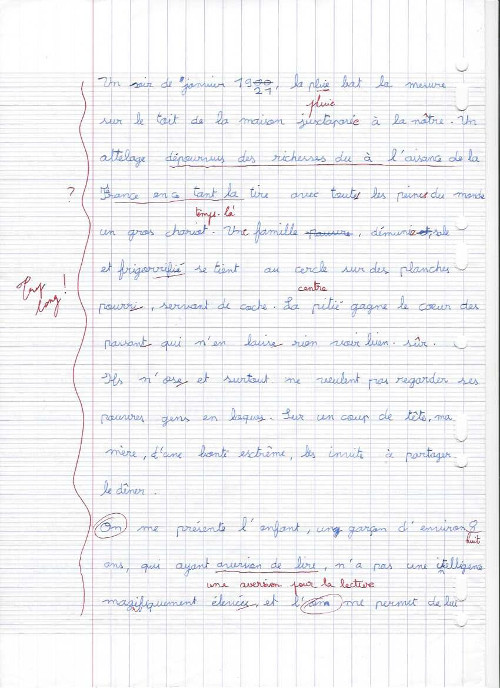 Un soir de janvier 1920, la pluie bat la mesure
21
pluie
sur le toit de la maison juxtaposée à la nôtre. Un
attelage dépourvues des richesses du à l'aisance de la
? France en ce tant la tire avec toutes les peines du monde
temps-là
un gros chariot. Une famille pauvre, démunie et, sale
et frigorrifié se tient au cercle sur des planches
Trop long !
centre
pourri, servant de coche. La pitié gagne le coeur des
passant qui n'en laisse rien voir bien sûr.
Ils n'ose et surtout ne veulent pas regarder ses
pauvres gens en loques. Sur un coup de tête, ma
mère, d'une bonté esctrême, les invite à partager
le dîner.
On me présente l'enfant, ung garçon d'environ 8
huit
ans, qui ayant aversion de lire, n'a pas une itelligence
une aversion pour la lecture
magifiquement élevées, et l'on me permet de lui